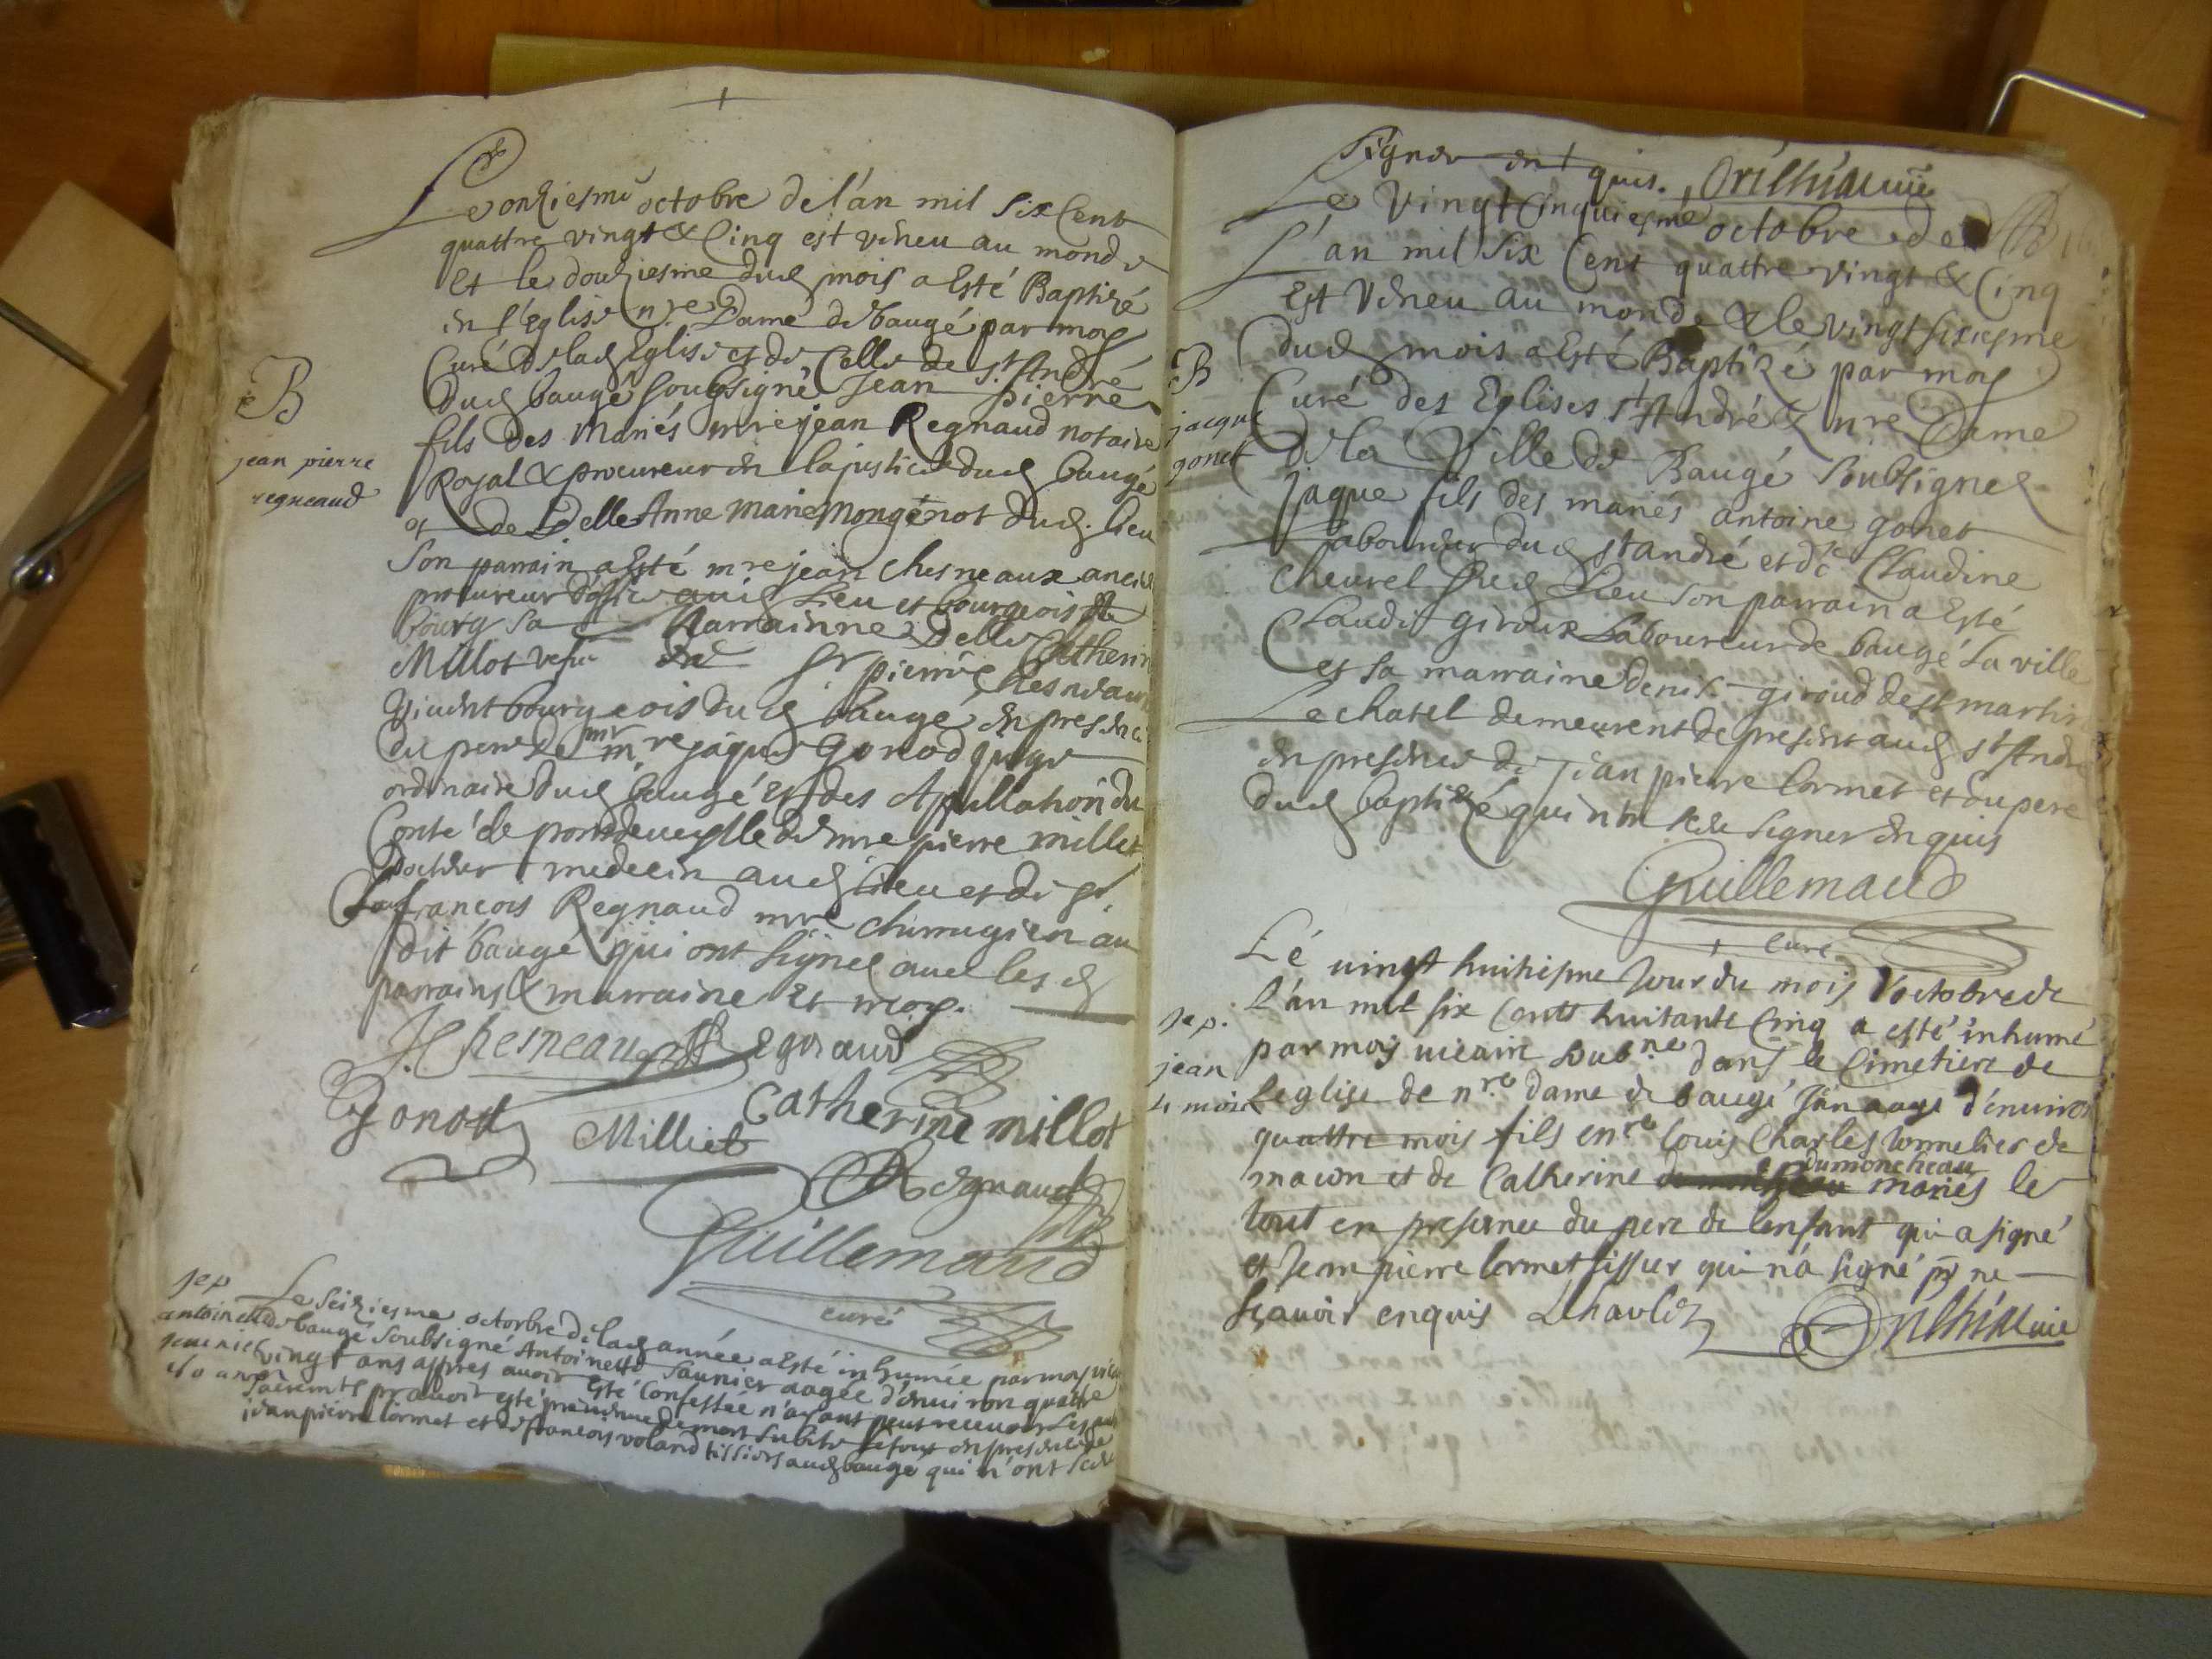 Le onziesme octobre de l'an mil six Cent
quattre vingt & Cinq est veneu au monde
Et le douziesme dud mois a Esté Baptizé
en l'Eglise nre Dame de baugé par moy
Curé de lad Eglise et de Celle de St André
dud baugé soubsigné Jean pierre
fils des Mariés mre jean Regnaud notaire
Royal & procureur en la justice dud baugé
et de Delle Anne Marie Mongenot dud. lieu
Son parrain a Esté mre jean Chesneaux ancien
procureur d'office aud Lieu et bourgeois de
bourg sa Marrainne Delle Catherine
Millot vefue de Sr pierre Chesneaux
vivent bourgeois dud baugé en presence
du pere de mre jaques Gonod juge
ordinaire dud baugé Et des Appellation du
Conté de pondeueylle de mre pierre millet
docteur medecin aud Lieu et de sr
francois Regnaud mre chirurgien au
dit baugé qui ont signez auec lesd
parrains & marraine Et moy.
B
jean pierre
regneaud
J Chesneaux Regnaud
Gonod Milliet Catherine millot
Regnaud
Guillemaud
curé
sep
antoinette
saunier
80 ans
Le seiziesme octobre de lad année a Esté inhumée par moy
de baugé soubsigné Antoinette Saunier aagée d'enuiron quatre
vingt ans appres auoir Esté Confessée n'ayant peut receuoir Les
sacrements pr auoir esté preuenue de mort subite Le tout en presence de
jean pierre Cormet et de francois voland tissiers aud baugé qui n'ont sceu
Signer en quis.
Le Vingt Cinquiesme octobre de
L'an mil Six Cent quattre vingt & Cinq
Est Veneu au monde & le vingt sixiesme
dud mois a Esté Baptizé par moy
Curé des Eglises St André & nre Dame
de la Ville de Baugé soubsigné
jaque fils des mariés antoine gonet
Laboureur dud st andré et de Claudine
cheurel dud Lieu son parrain a Esté
Claude giroux Laboureur de baugé La ville
et sa marraine denise giroud de st martin
Le chatel demeurent de present aud st André
en presence de jean pierre Cormet et du pere
dud baptizé qui n'ont sceu signer enquis
B
jacque
gonet
Guillemaud
curé
Le uingt huitiesme Jour du mois d'octobre de
L'an mil six Cents huitante Cinq a esté inhumé
par moy uicaire soubne dans le Cimetiere de
Leglise de nre dame de baugé Jan aagé d'enuiron
quattre mois fils enre louis Charles tonnelier de
macon et de Catherine dumoncheau mariés le
tout en presence du pere de lenfant qui a signé
et Jean pierre Cormet tissier qui n'a signé pr ne
sçauoir enquis LCharles
sep.
jean
4 mois